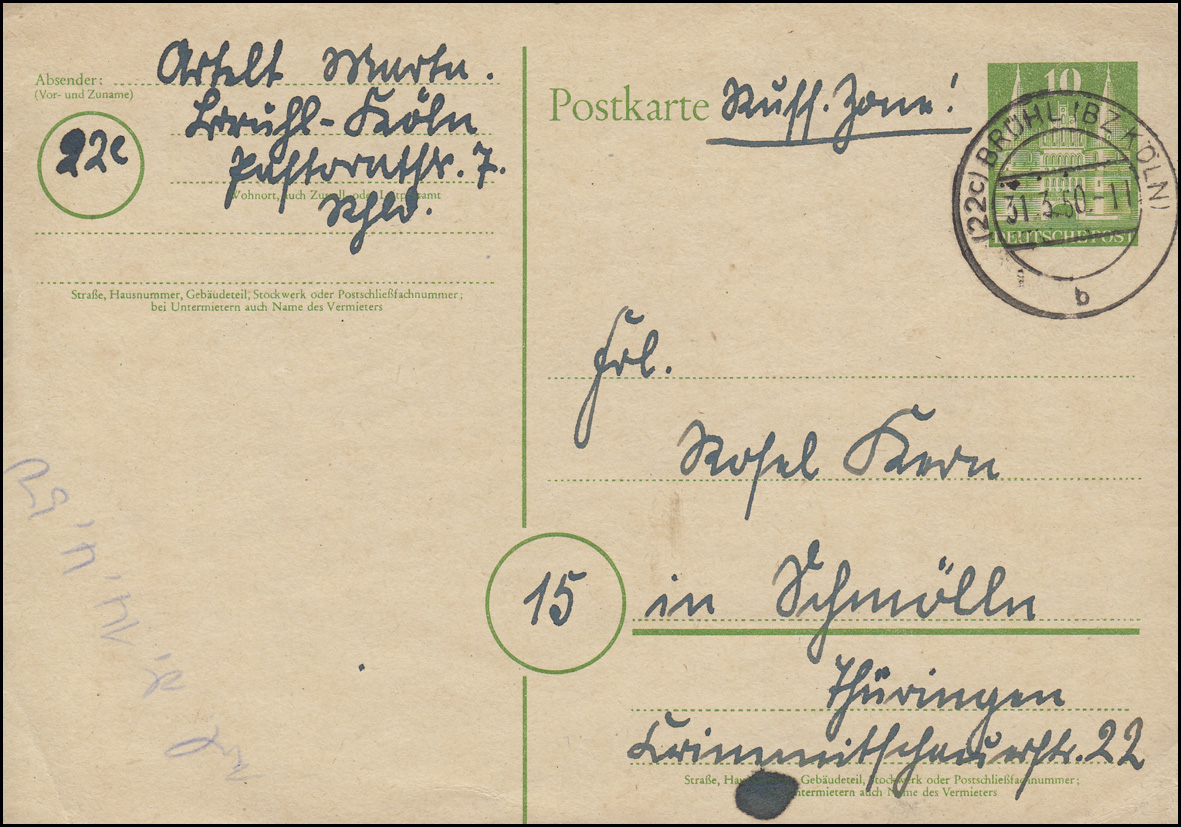 Absender: Artelt Marta.
(Vor- und Zuname)
22c
Brühl-Köln
Pastoratstr. 7.
Wohnort, auch Zustell- oder Leitpostamt
Rhld.
Straße, Hausnummer, Gebäudeteil, Stockwerk oder Postschließfachnummer;
bei Untermietern auch Name des Vermieters
Postkarte Russ. Zone!
10
DEUTSCHE POST
(22c) BRÜHL (BZ KÖLN)
31.3.50.-11
b
Frl.
Rosel Kern
15
in Schmölln
Thüringen
Crimmitschauerstr. 22
Straße, Hausnummer, Gebäudeteil, Stockwerk oder Postschließfachnummer;
bei Untermietern auch Name des Vermieters